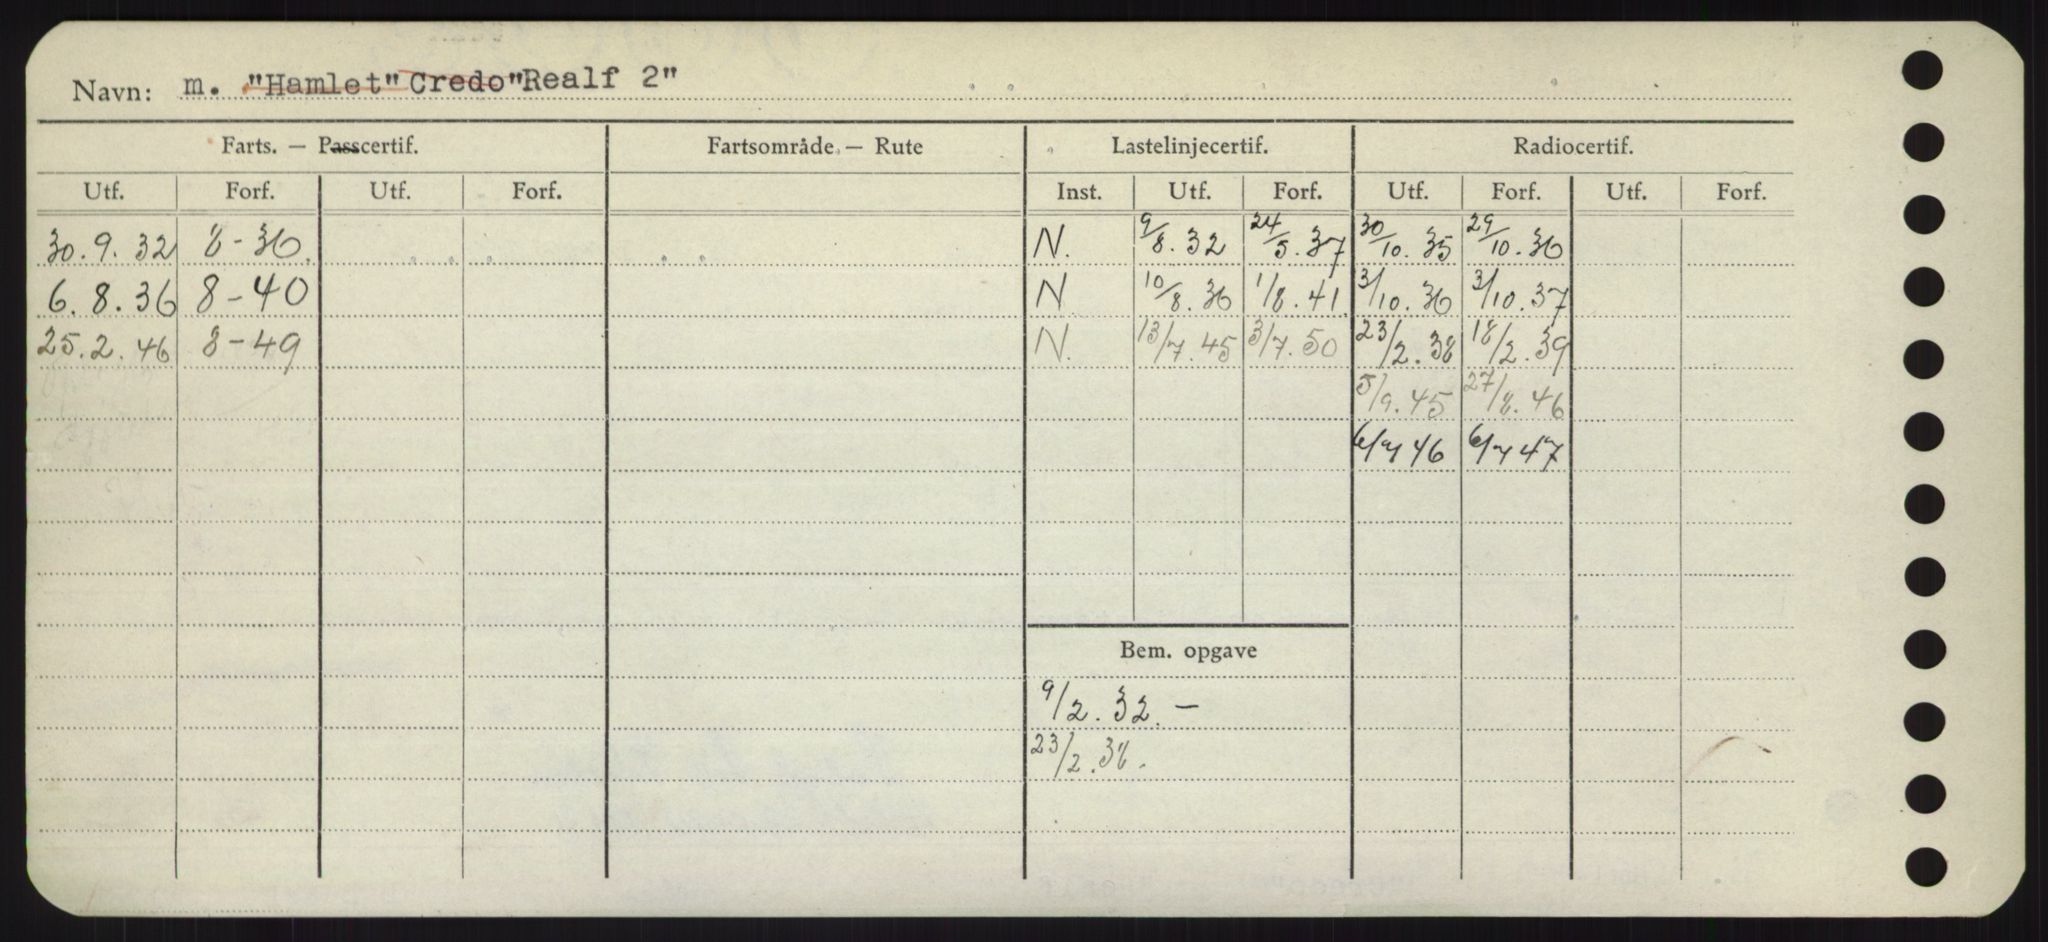 Navn: m. "Hamlet" Credo "Realf 2"
Farts. — Passcertif. Fartsområde — Rute Lastelinjecertif. Radiocertif.
Utf. Forf. Utf. Forf. Inst. Utf. Forf. Utf. Forf. Utf. Forf.
30.9.32 8-36. N. 9/8.32 24/5.37 30/10.35 29/10.36
6.8.36 8-40 N 10/8.36 1/8.41 3/10.36 3/10.37
25.2.46 8-49 N. 13/7.45 3/7.50 23/2.38 18/2.39
5/9.45 27/8.46
6/7 46 6/7 47
Bem. opgave
9/2.32.-
23/2.38.